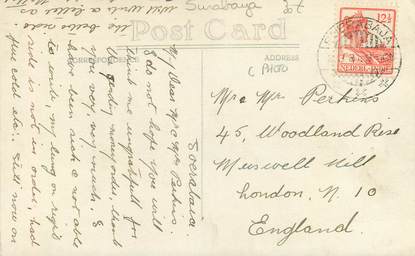 Surabaya
Post Card
CORRESPONDENCE
ADDRESS
(PHOTO
Soerabaia.
My Dear Mr & Mrs Perkins.
I do not hope you will
think me ungrateful for
sending moneyorder, thank
you very, very much. I
have been sick & not able
to write, my lung on right
side is not in order, had
flue cold etc. Will now on
the better side.
Will write a letter as
12½
NEDERL. INDIE
Mr & Mrs Perkins
45, Woodland Rise
Muswell Hill
London, N. 10
England.